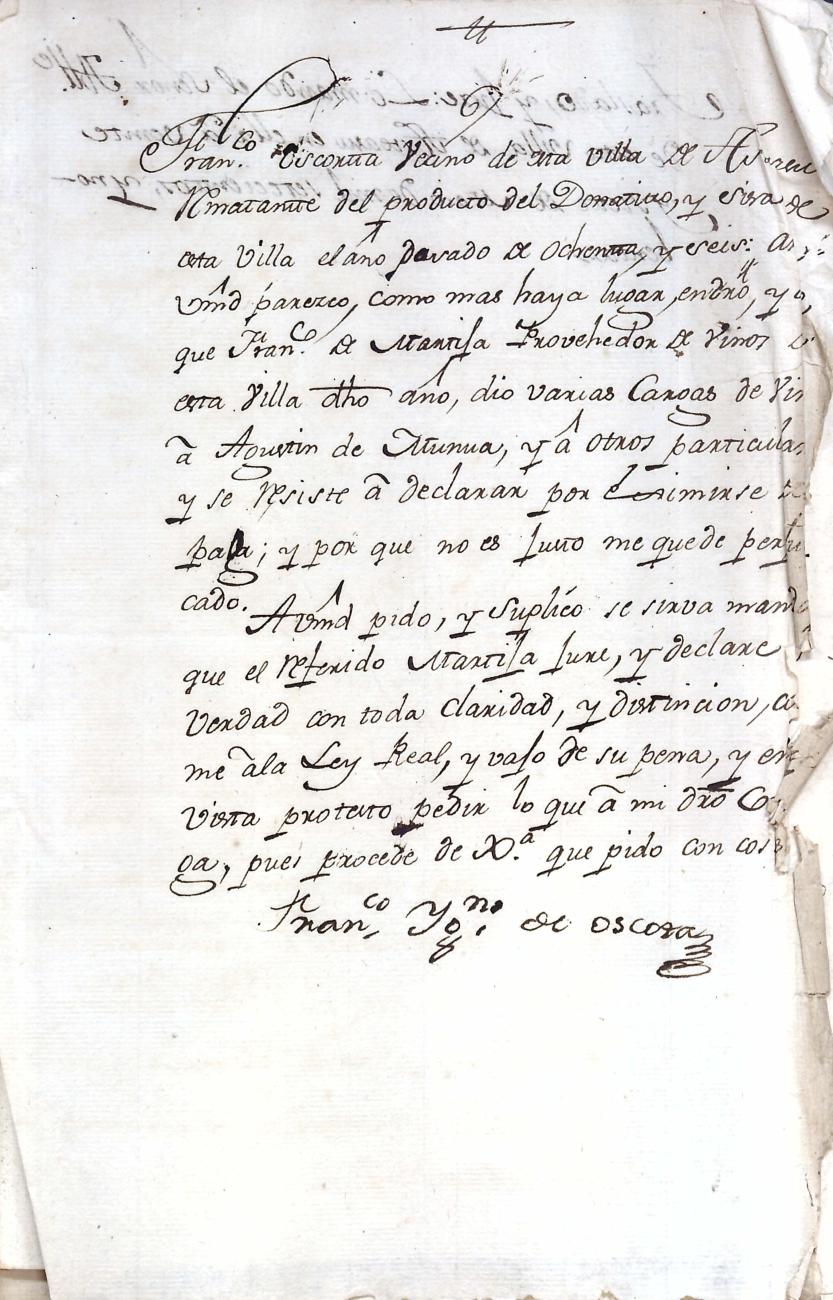 Fran.co Oscorta Vecino de esta villa de
Rmatante del producto del Donativo, y sisa de
esta Villa el año pasado de ochenta, y seis: a
vmd parezco, como mas haya lugar, en dro, y
que Fran.co de Martija Provehedor de Vinos
esta Villa dho año, dio varias Cargas de Vin
a Agustin de Munua, y a otros particula
y se Resiste a declarar por eximirse
paga; y por que no es justo me quede perju
cado.
A vmd pido, y suplico se sirva mand
que el Referido Martija Jure, y declare
verdad con toda claridad, y distincion, co
me ala Ley Real, y vajo de su pena, y en
vista protesto pedir lo que a mi dro Co
ga, pues procede de X.a que pido con cos
Fran.co Yg.no de oscorta